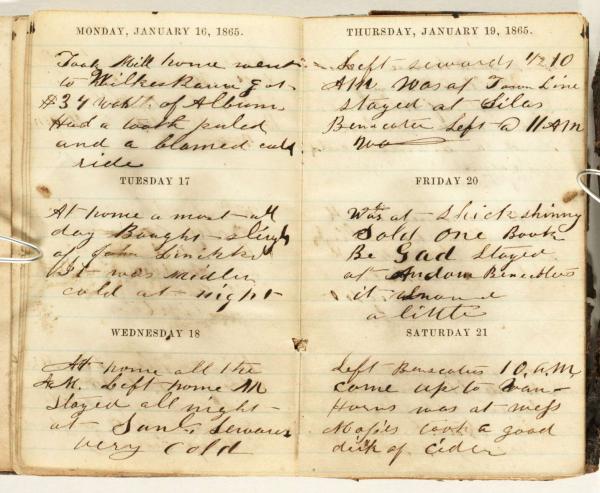 MONDAY, JANUARY 16, 1865.
Took Mill home went
to Wilkesbarre got
$34 worth of Albums
Had a tooth puled
and a blamed cold
ride
TUESDAY 17
At home a most all
day Bought sleigh
of John
It was midlin
cold at night
WEDNESDAY 18
At home all the
A.M. Left home M
stayed all night
at Saml. Sewards
very cold
THURSDAY, JANUARY 19, 1865.
Left sewards 1/2 10
AM Was at Town Line
stayed at Silas
Benscoter Left a 11 AM
FRIDAY 20
Was at Shickshinny
Sold One Book
Be Gad Stayed
at Benscoters
it snowed
a little
SATURDAY 21
Left Benscoters 10, A.M
come up to Van-
Horns was at
took a good
drik of cider